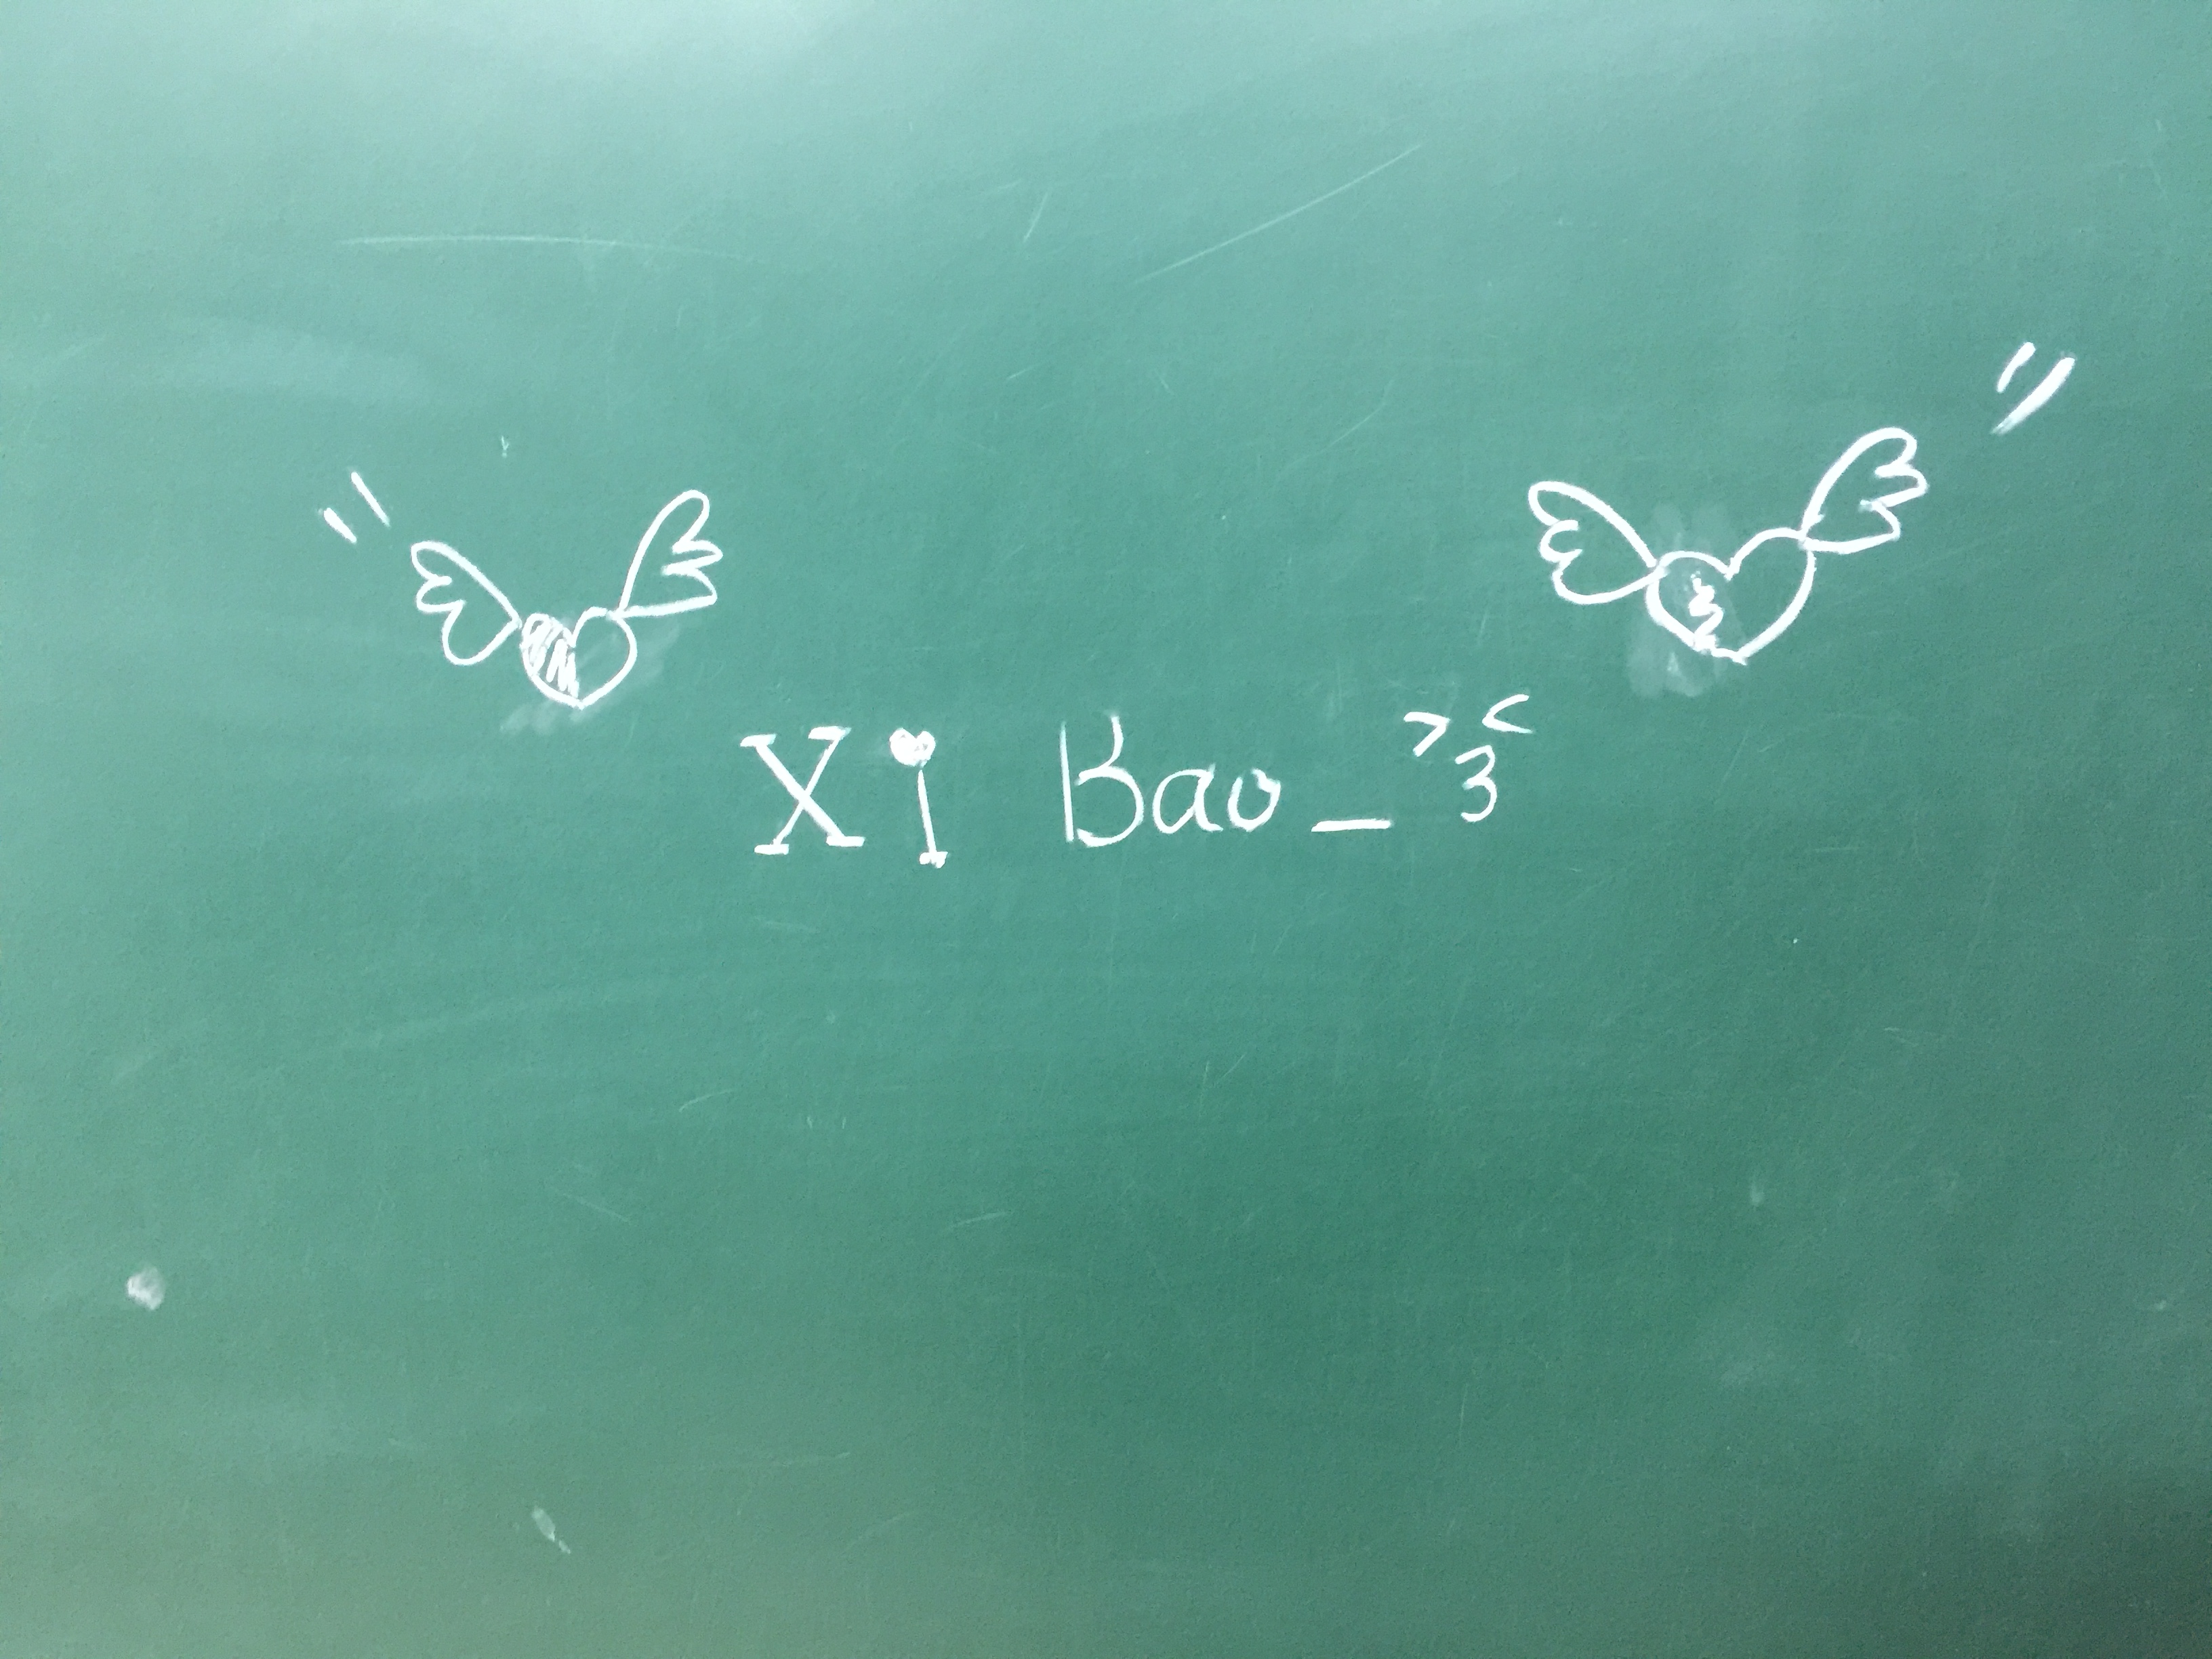 Xi Bao_ >3<